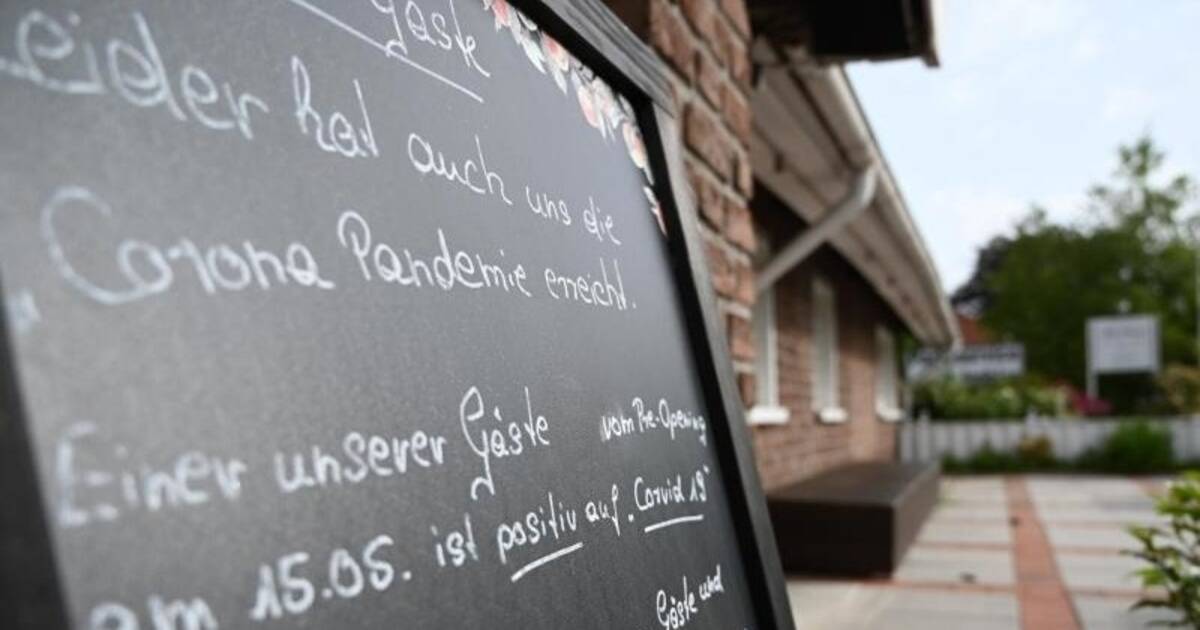 Gäste
Leider hat auch uns die
"Corona Pandemie erreicht.
Einer unserer Gäste vom Pre-Opening
am 15.05. ist positiv auf "Corvid 19"
Gäste und